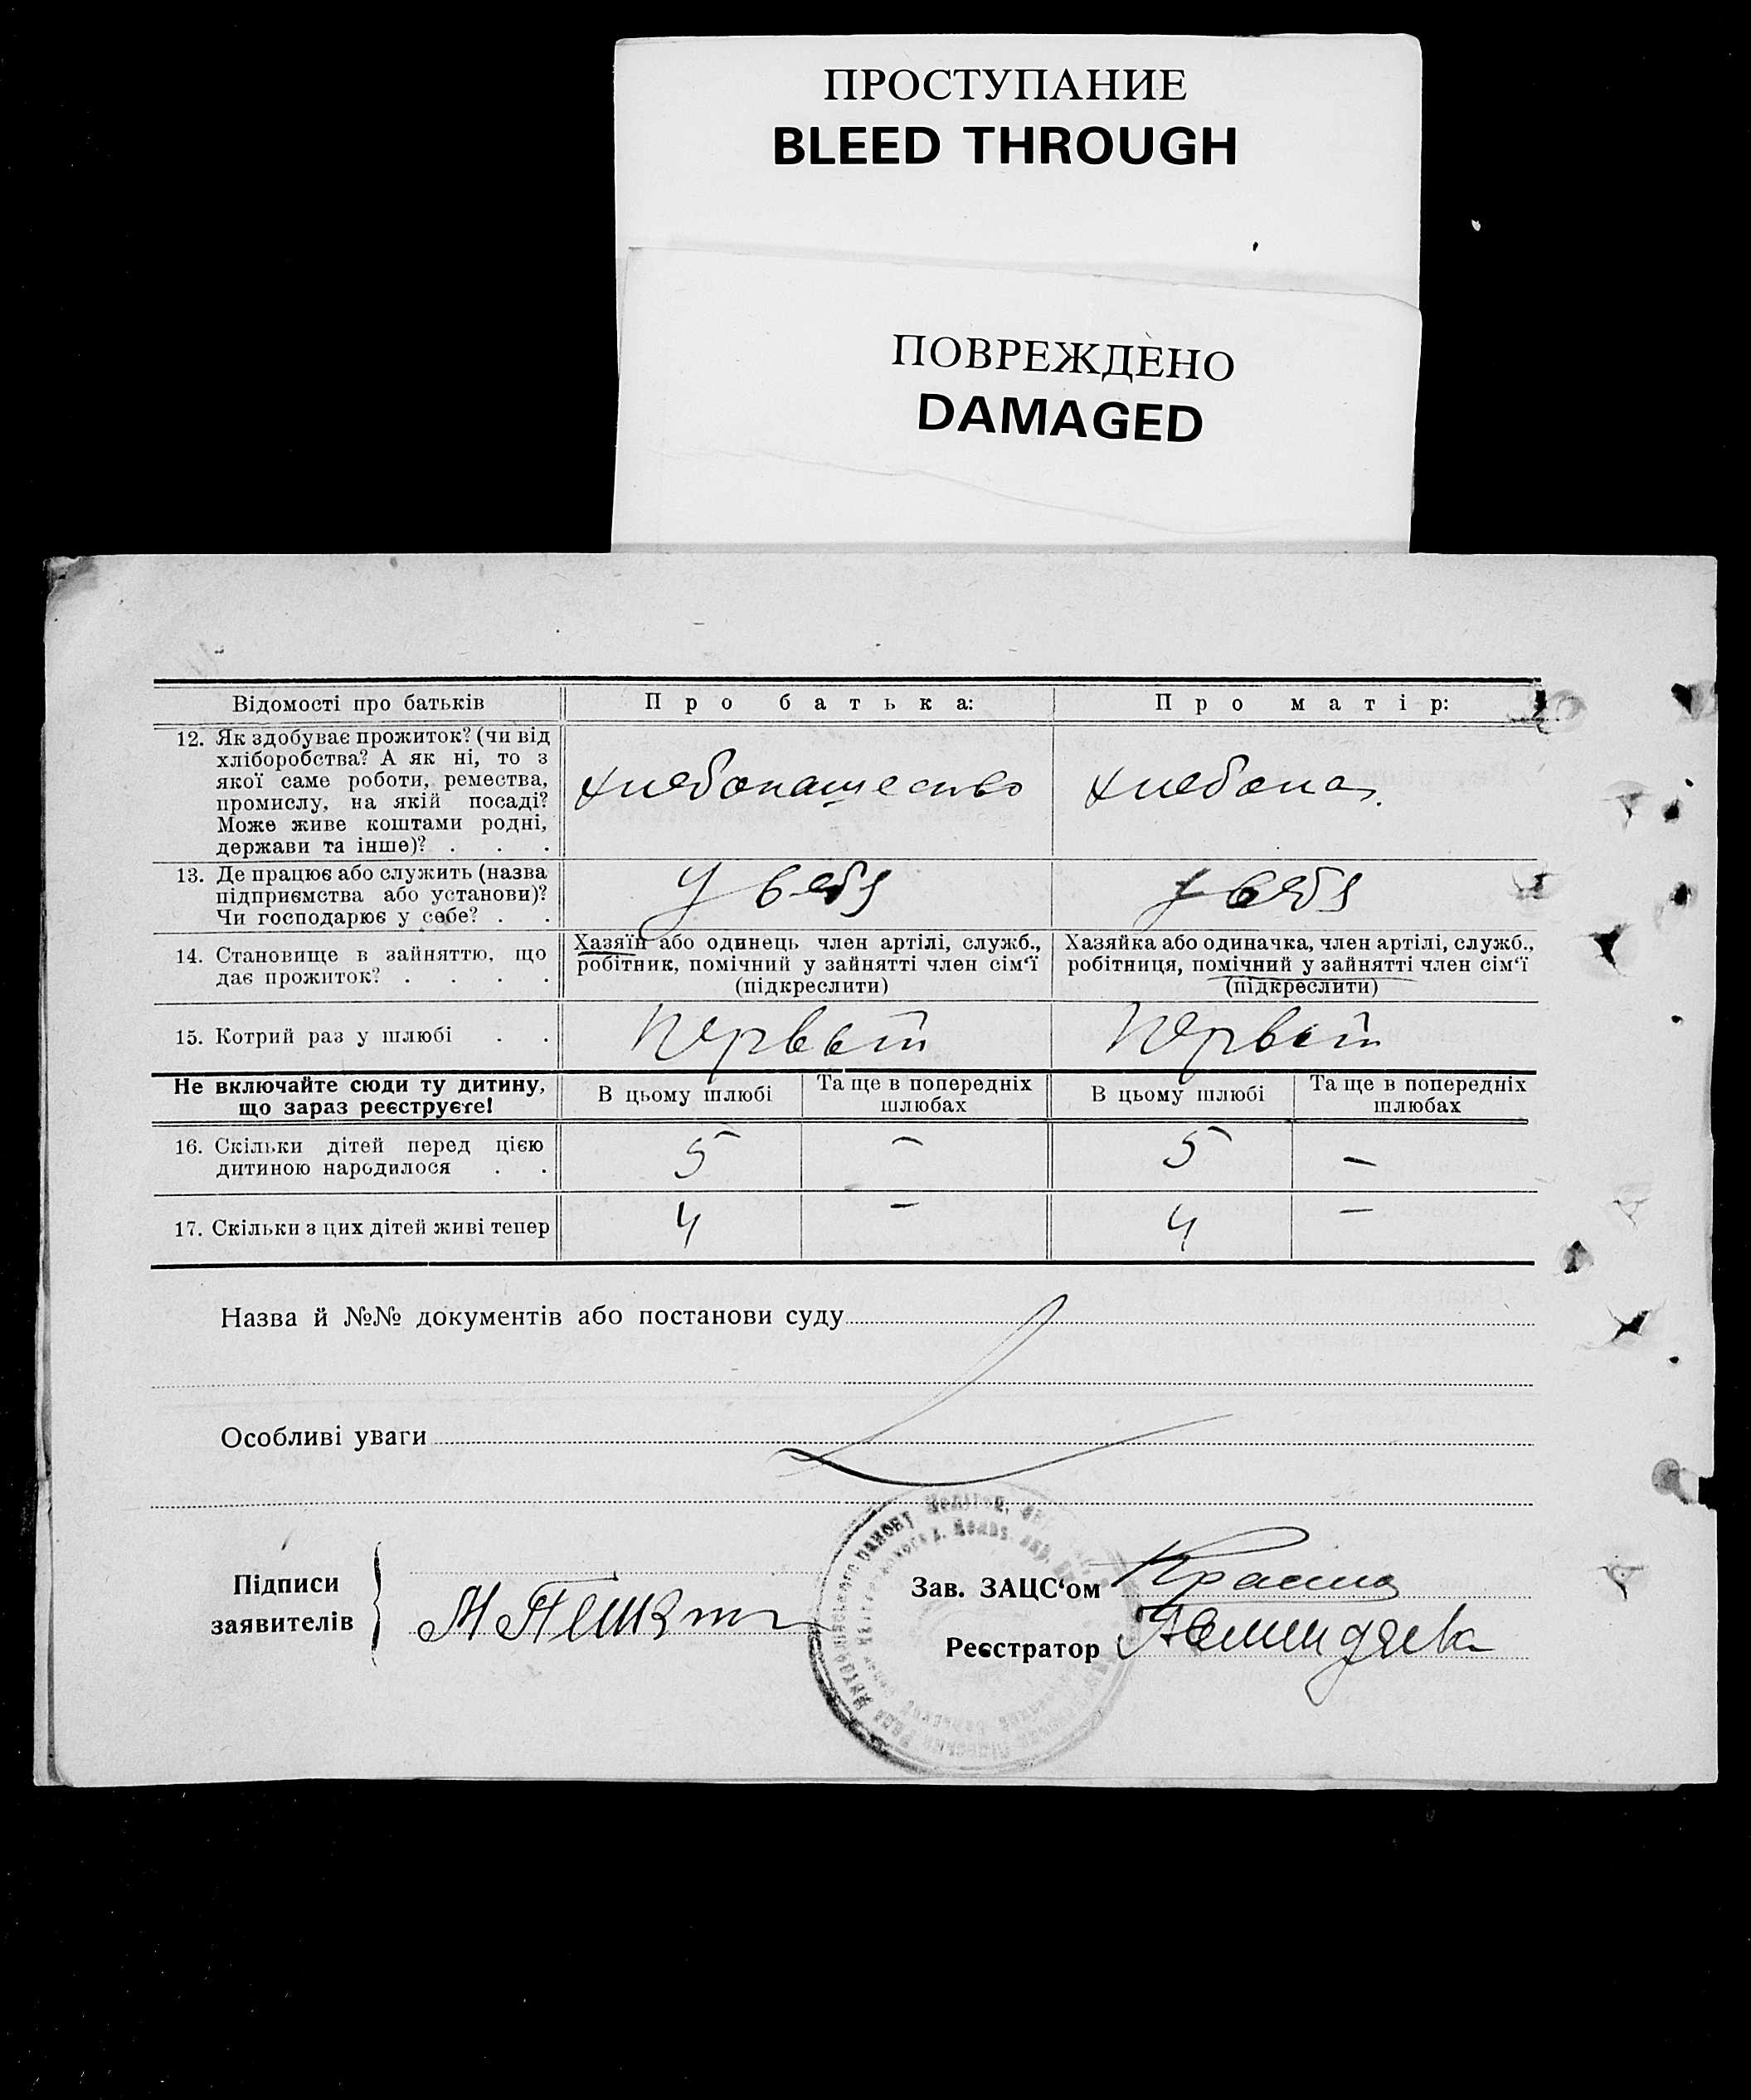 ПРОСТУПАНИЕ
BLEED THROUGH
ПОВРЕЖДЕНО
DAMAGED
Відомості про батьків
Про батька:
Про матір:
12. Як здобуває прожиток? (чи від
хліборобства? А як ні, то з
якої саме роботи, ремества,
промислу, на якій посаді?
Може живе коштами родні,
держави та інше)? . . .
хлебопашество
хлебопа.
13. Де працює або служить (назва
підприємства або установи)?
Чи господарює у себе? . .
у себя
у себя
14. Становище в зайняттю, що
дає прожиток? . . . .
Хазяїн або одинець член артілі, служб.,
робітник, помічний у зайнятті член сім‘ї
(підкреслити)
Хазяйка або одиначка, член артілі, служб.,
робітниця, помічний у зайнятті член сім‘ї
(підкреслити)
15. Котрий раз у шлюбі . .
Первый
Первый
Не включайте сюди ту дитину,
що зараз реєструєте!
В цьому шлюбі
Та ще в попередніх
шлюбах
В цьому шлюбі
Та ще в попередніх
шлюбах
16. Скільки дітей перед цією
дитиною народилося . .
5 – 5 –
17. Скільки з цих дітей живі тепер
4 – 4 –
Назва й №№ документів або постанови суду
Особливі уваги
Підписи
заявителів
Зав. ЗАЦС‘ом
Реєстратор